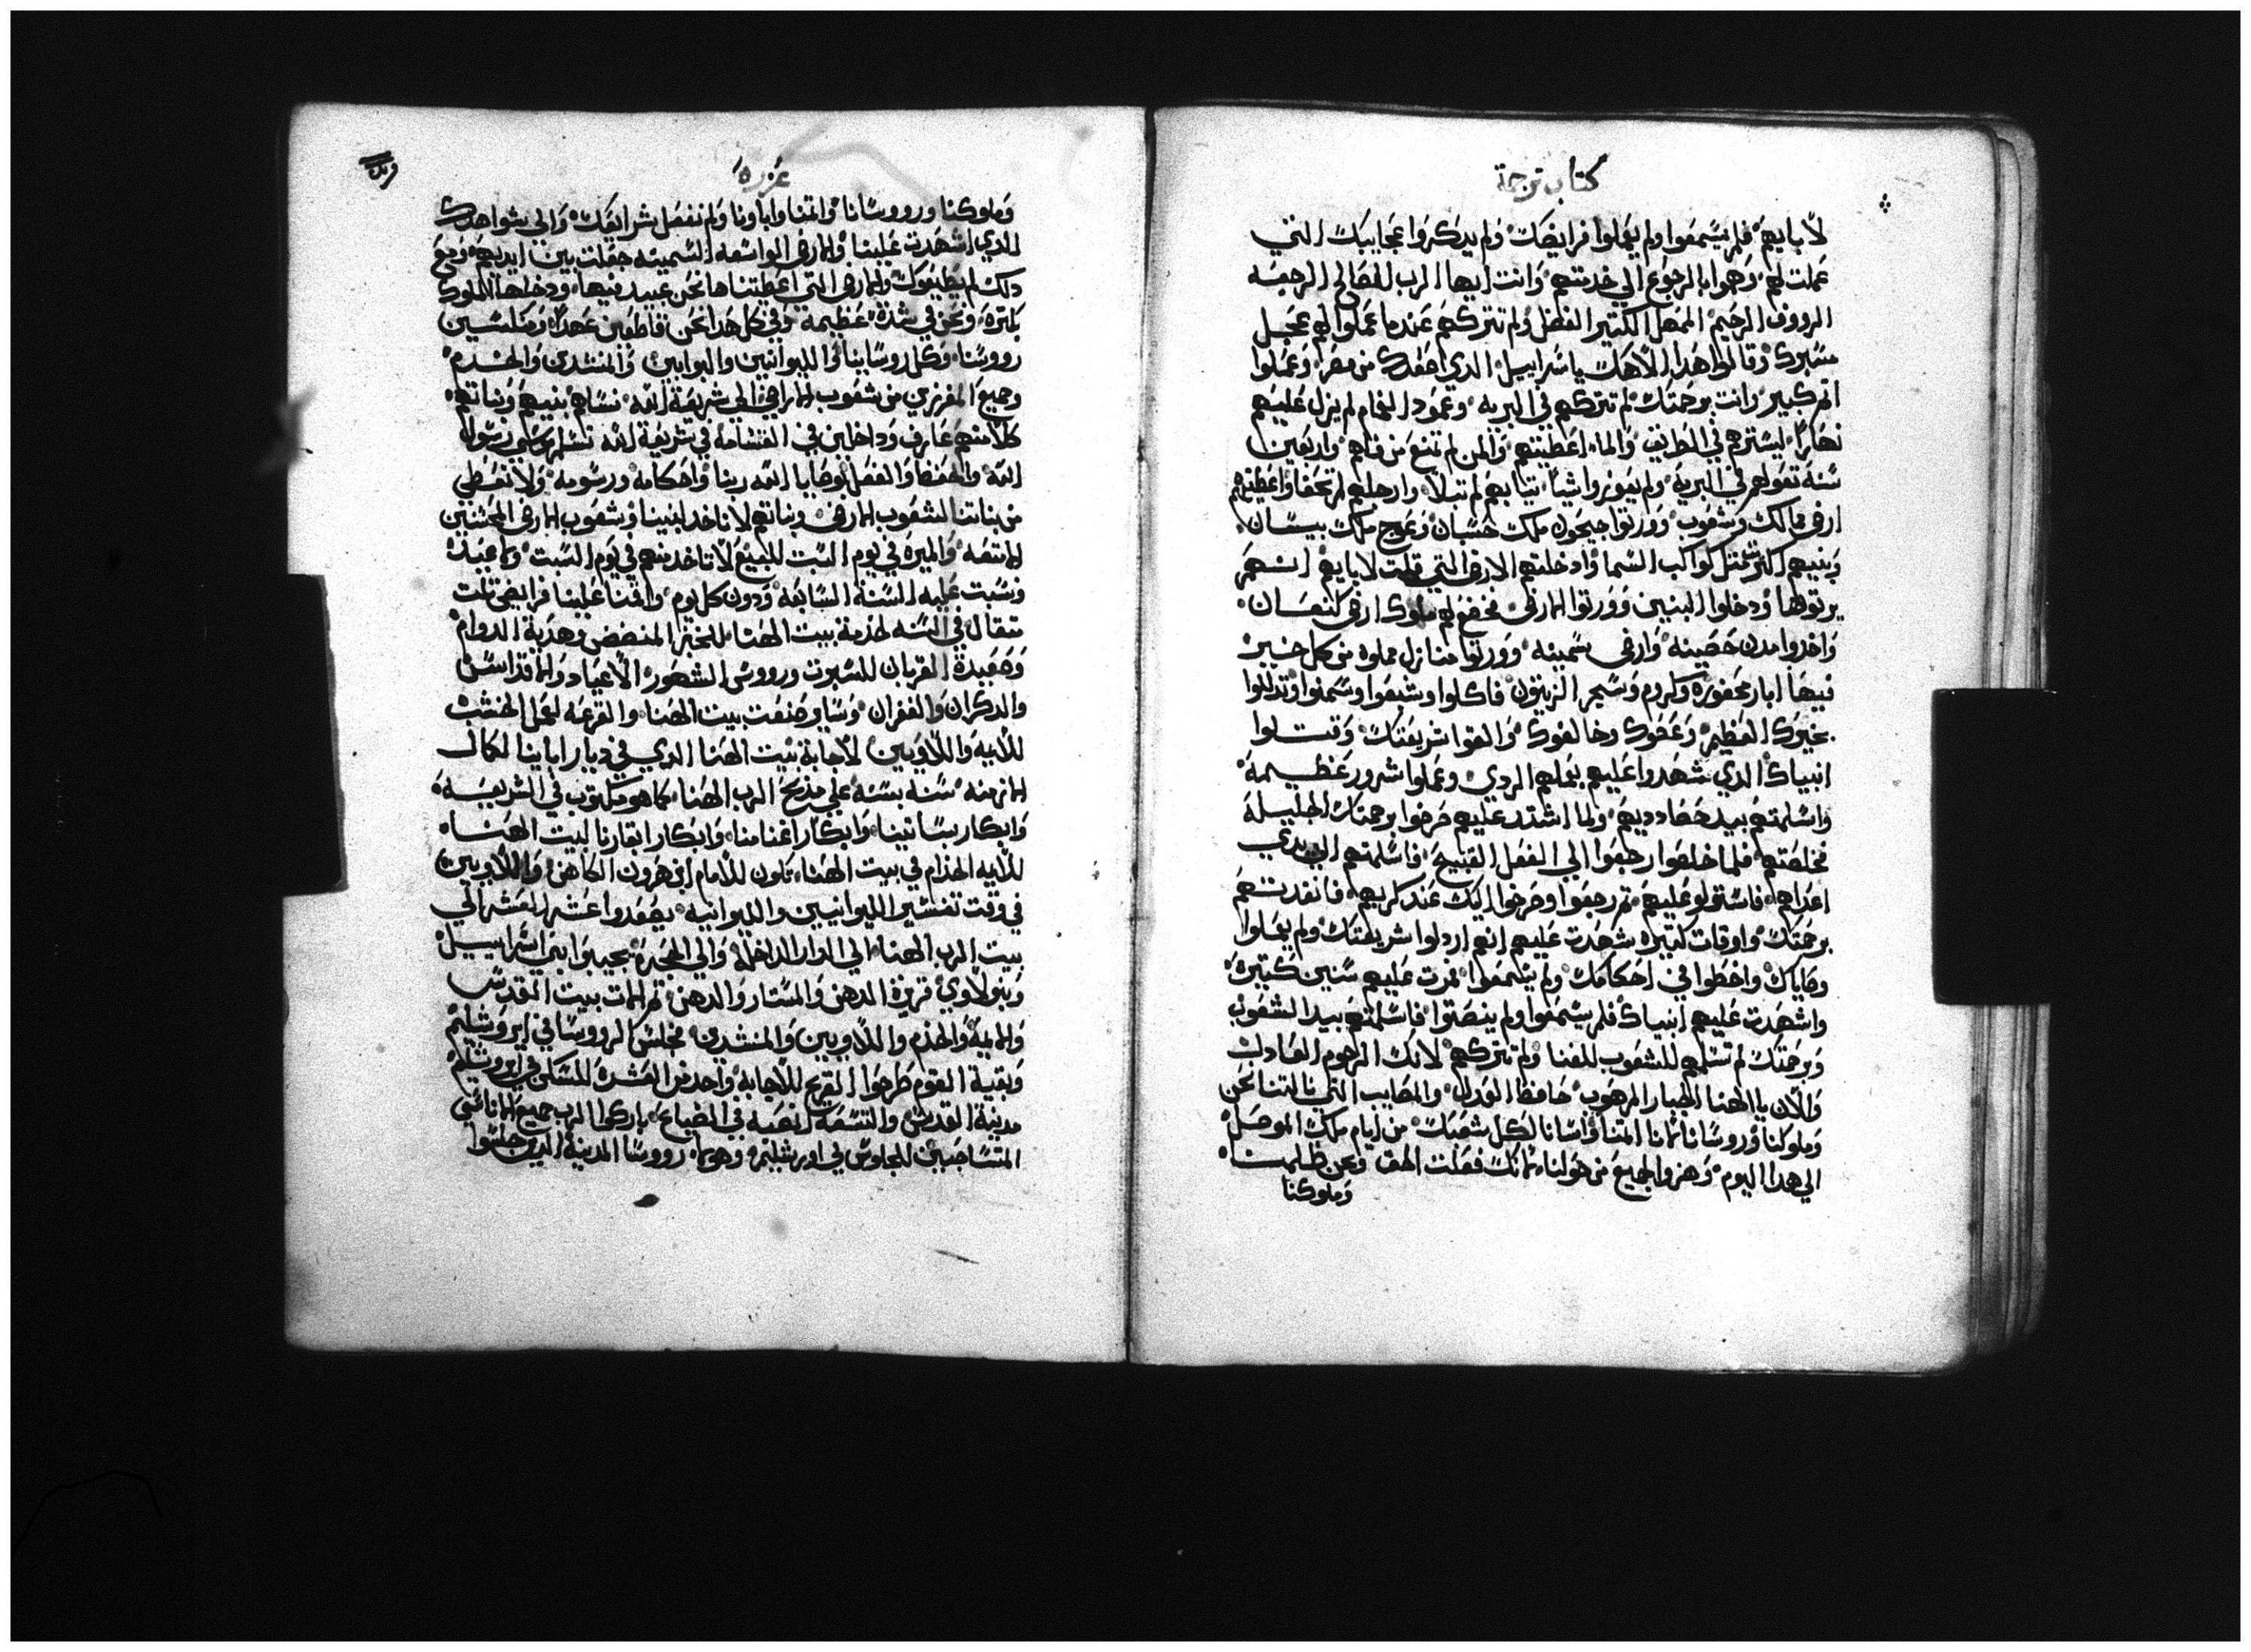 كتاب ترجمة
لابايهم فلم يسمعوا ولم يعملوا فرايضك ولم يدكروا عجايبك التي
عملت لهم وهموا بالرجوع الي خدمتهم وانت ايها الرب الفصال الرجعه
الرووف الرحيم الممهل الكتير الفضل ولم تتركهم عندما عملوا لهم عجل
مسبوك وقالوا هدا الاهك ياسراييل الدي اصعدك من مصر وعملوا
اتم كبير وانت برحمتك لم تتركهم في البريه وعمود الغمام لم يزل عليهم
نهارا ليسترهم في الطريق والماء اعطيتهم والمن لم تمنع من فاهم واربعين
سنة تقولهم في البرية ولم يعوزوا شيا تيابهم لم تبلا وارجلهم لم تحفا واعطيتهم
ارض ممالك وشعوب وورتوا جيحون ملك حسبان وعوج ملك بيسان
وبنيهم اكترت متل كواكب السما وادخلتهم الارض التي قلت لابايهم انهم
يرتوها ودخلوا البنين وورتوا الارض فخضع لهم ملوك ارض كنعان
واخدوا مدن حصينه وارض سمينه وورتوا منازل مملوه من كل خير
فيها ابار محفوره وكروم وشجر الزيتون فاكلوا وشبعوا وسمنوا وتدللوا
بخيرك العظيم وعصوك وخالفوك والقوا شريعتك وقتلوا
انبياك الدي شهدوا عليهم بعملهم الردي وعملوا شرور عظيمة
واسلمتهم بيد مضادديهم ولما اشتد عليهم صرخوا برحمتك الجليلة
فخلصتهم فلما خلصوا رجعوا الي الفعل القبيح فاسلمتهم الي يدي
اعداهم فاستولو عليهم تم رجعوا وصرخوا اليك عند كربهم فانقدتهم
برحمتك واوقات كتيره شهدت عليهم انهم اردلوا شريعتك ولم يعملوا
وصاياك واخطوا في احكامك ولم يسمعوا فمرت عليهم سنين كتيرة
واشهدت عليهم انبياك فلم يسمعوا ولم ينصتوا فاسلمتهم بيد الشعوب
وبرحمتك لم تسلمهم للشعوب للفنا ولم تتركهم لانك الرحوم العادل
والان يا الهنا الجبار المرهوب حافظ العدل والمصايب التي نالتنا نحن
وملوكنا وروسانا ايمتنا واساتنا لكل شعبك من ايام ملك الموصل
الي هدا اليوم وهزوا الجميع من حولنا لانك فعلت الحق ونحن ظلمنا
وملوكنا
عزره
وملوكنا وروسانا وايمتنا واباونا ولم نفعل شرايعك والي شواهدك
الدي اشهدت علينا والارض الواسعه السمينه جعلت بين ايديهم ومع
دلك لم يطيعوك والارض التي اعطيتناها نحن عبيد فيها ودخلها الملوك
بكتره ونحن في شدة عظيمة وفي كل هدا نحن قاطعين عهدا ومكتبين
رووسنا وكل روساينا والليوانيين والبوابين والمنشدين والخدم
وجميع المفرزين من شعوب الاراضي الي شريعة الله نساهم بنيهم وبناتهم
كلا منهم عارف وداخلين في القسامة في شريعة الله تسلم موسي رسول
الله والحفظ والفعل لوصايا الله ربنا واحكامه ورسومه ولا نعطي
من بناتنا لشعوب الارض وبناتهم لا ناخد لبنينا وشعوب الارض المجتنبين
الامتعه والميره في يوم السبت للبيع لا ناخد منهم في يوم السبت والاعياد
ونسبت عليه السنة السابعه وديون كل يوم واقمنا علينا فرايض تلت
متقال في السنه لخدمة بيت الهنا للخبز المنضض وهدية الدوام
وصعيدة القربان للسبوت ورووس الشهور الاعياد والاقداس
والدكران والغفران وساير صنعت بيت الهنا والقرعه لحمل الخشب
للايمه واللاويين لاجابة بيت الهنا الدي في ديار اباينا لكمال
الازمنه سنه بسنه علي مدبح الرب الهنا كما هو مكتوب في الشريعه
وابكار بساتينا وابكار اغنامنا وابكار ابقارنا لبيت الهنا
للايمه الخدام في بيت الهنا تكون للامام ابن هرون الكاهن واللاويين
في وقت تعشير الليوانيين والليوانيه يصعدوا عشر العشر الي
بيت الرب الهنا الي الدار الداخلة والي الحجرة يجيبوا بني اسراييل
وبنو لاوي فريزة الدهن والمسطار والدهن تم الات بيت المقدس
والايمة والخدم واللاويين والمنشدين فجلس الرووسا في ايروشليم
وبقية القوم طرحوا القرع للاجابة واحد من العشرة للسكن في ايروشليم
مدينة القدس والتسعه انصبه في الضياع باركوا الرب جميع الاناس
المتساجبين للجلوس في اورشليم وهولاء رووسا المدينة الدين جلسوا